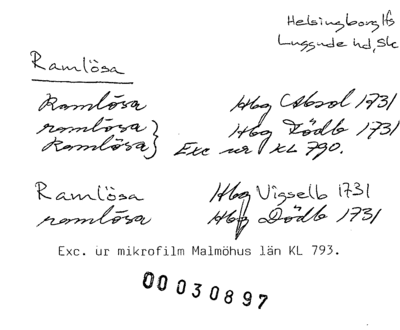 Helsingborg lfs
Luggude hd, Sk
Ramlösa
Ramlösa Hbg Absol 1731
ramlösa } Hbg Dödb 1731
Ramlösa } Exc ur KL 790.
Ramlösa Hbg Vigselb 1731
ramlösa Hbg Dödb 1731
Exc. ur mikrofilm Malmöhus län KL 793.
00030897